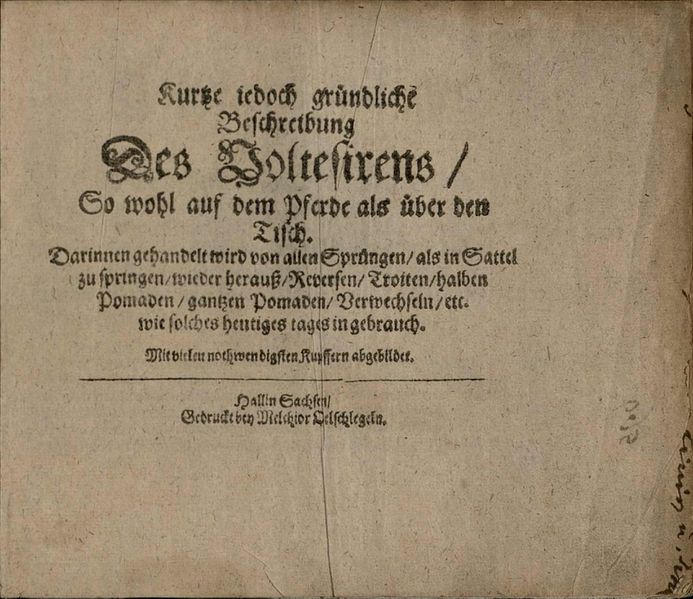 Kurtze iedoch gründliche
Beschreibung
Des Voltesirens /
So wohl auf dem Pferde als über den
Tisch.
Darinnen gehandelt wird von allen Sprüngen / als in Sattel
zu springen / wieder herauß / Reversen / Troiten / halben
Pomaden / gantzen Pomaden / Verwechseln / etc.
wie solches heutiges tages in gebrauch.
Mit vielen nothwendigsten Kupffern abgebildet.
Hall in Sachsen /
Gedruckt bey Melchior Oelschlegeln.